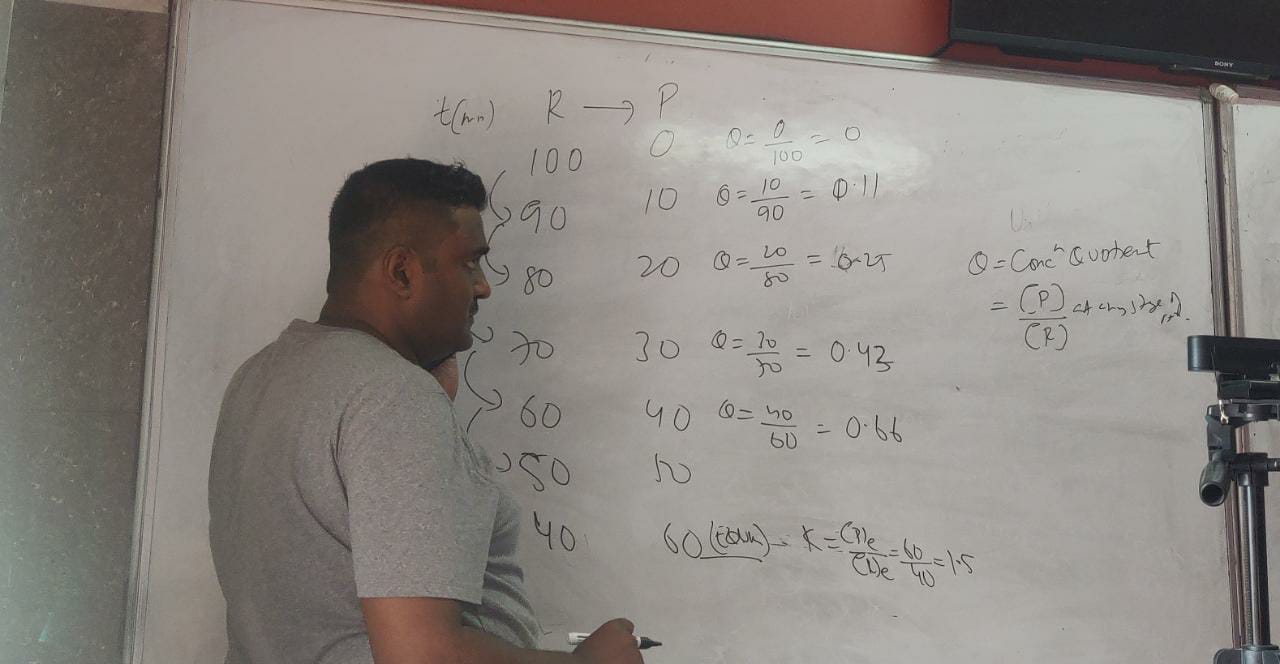 SONY
t(min) R → P
100 0 Q = 0/100 = 0
90 10 Q = 10/90 = 0.11
80 20 Q = 20/80 = 0.25
70 30 Q = 30/70 = 0.43
60 40 Q = 40/60 = 0.66
50 50
40 60 (Eqbm) → K = (P)e/(R)e = 60/40 = 1.5
Q = Concⁿ Quotient
= (P)/(R) at any stage of